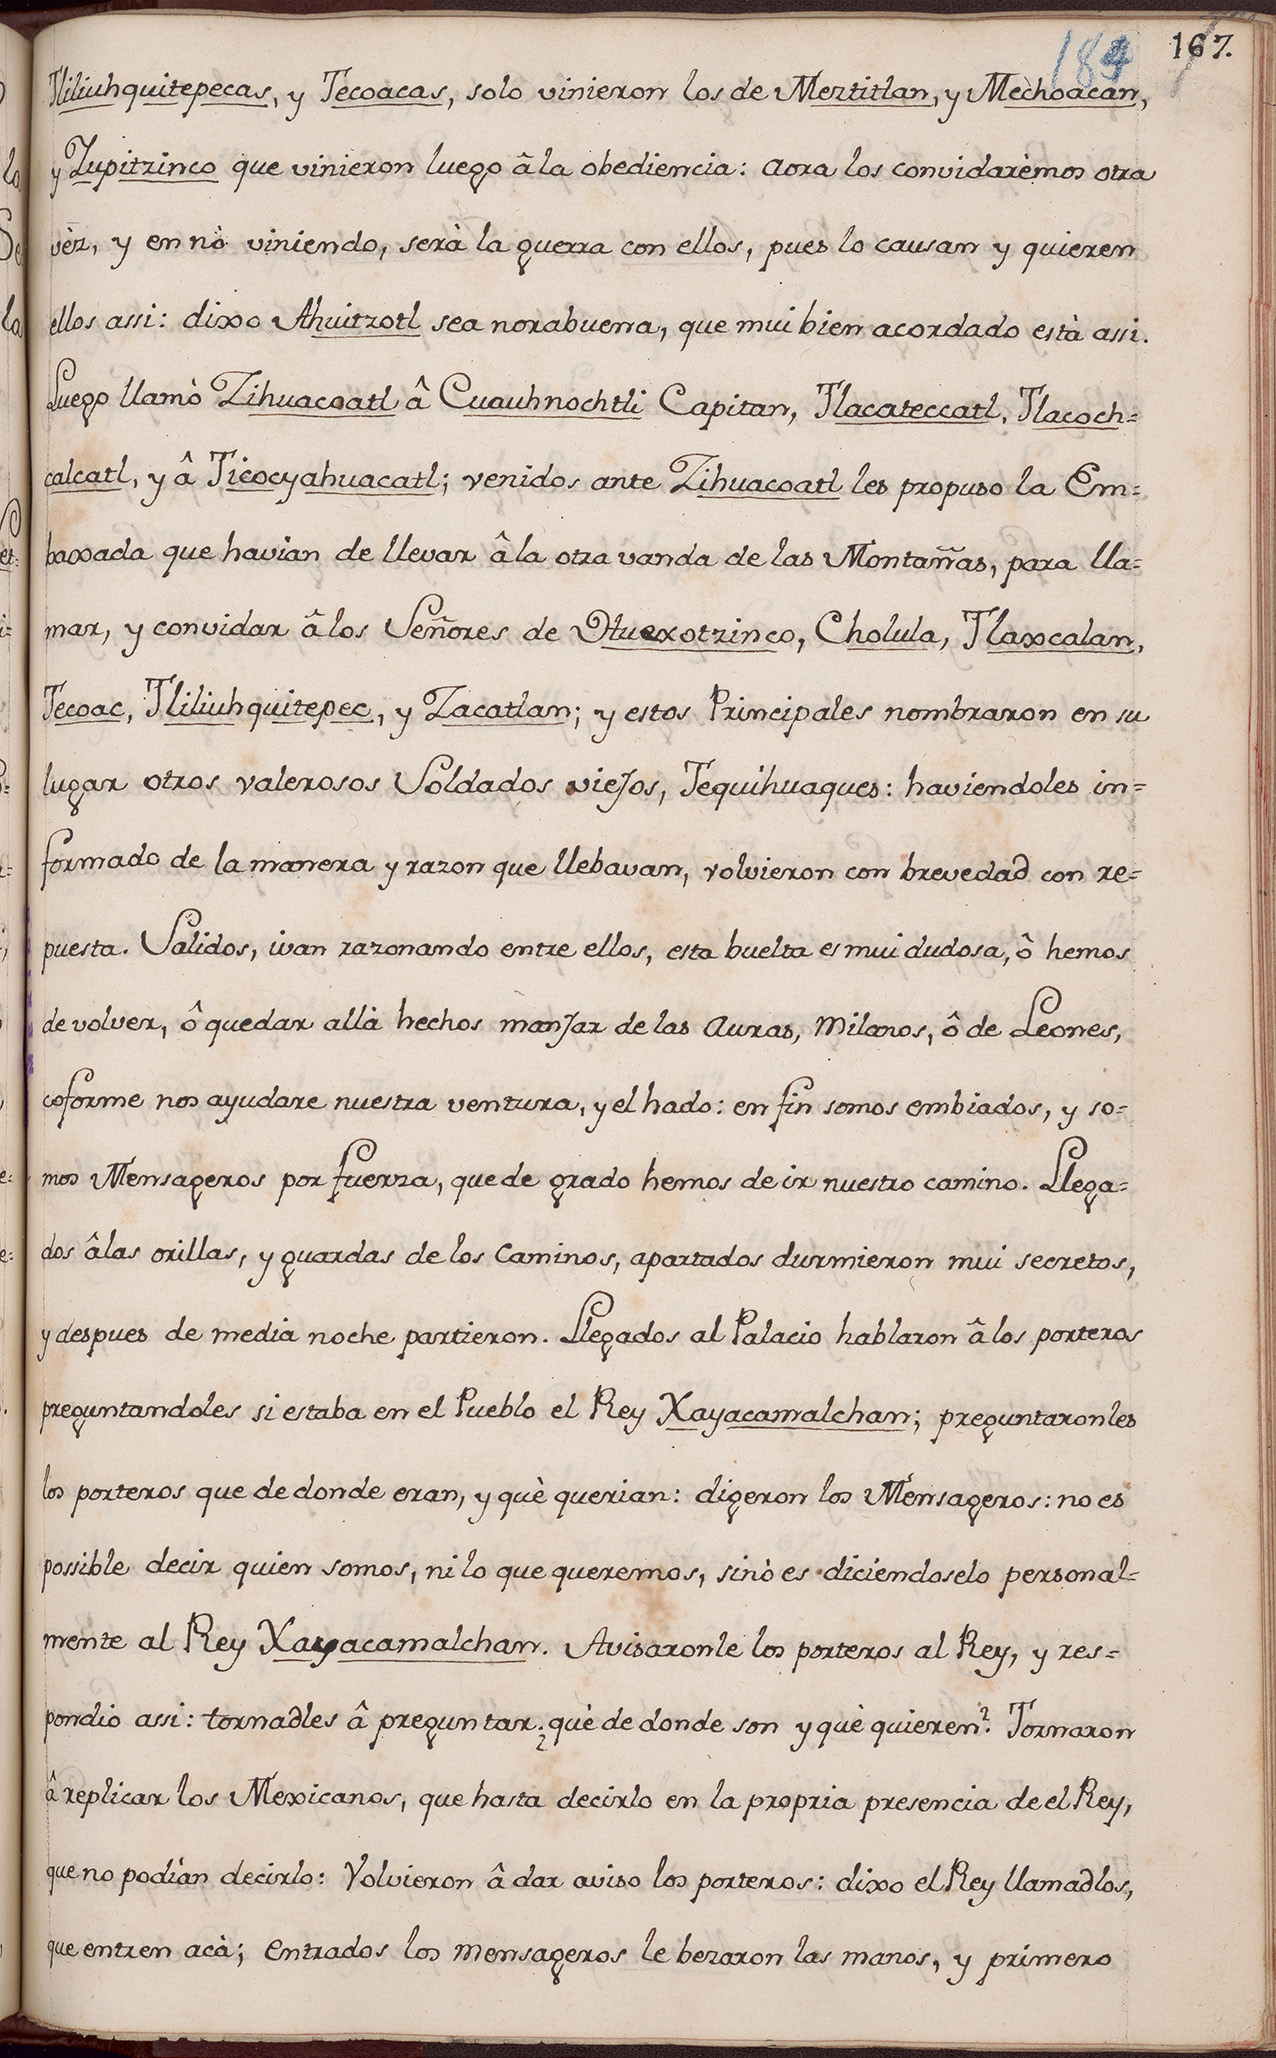 184 167.
Tliliuhquitepecas, y Tecoacas, solo vinieron los de Meztitlan, y Mechoacan,
y Zupitzinco que vinieron luego â la obediencia: aora los convidarèmos otra
vèz, y en nò viniendo, serà la guerra con ellos, pues lo causan y quieren
ellos assi: dixo Ahuitzotl sea norabuena, que mui bien acordado està assi.
Luego llamò Zihuacoatl â Cuauhnochtli Capitan, Tlacateccatl, Tlacoch=
calcatl, y â Ticocyahuacatl; venidos ante Zihuacoatl les propuso la Em=
baxada que havian de llevar â la otra vanda de las Montañas, para lla=
mar, y convidar â los Señores de Huexotzinco, Cholula, Tlaxcalan,
Tecoac, Tliliuhquitepec, y Zacatlan; y estos Principales nombraron en su
lugar otros valerosos Soldados viejos, Tequihuaques: haviendoles in=
formado de la manera y razon que llebavan, volvieron con brevedad con re=
puesta. Salidos, ivan razonando entre ellos, esta buelta es mui dudosa, ô hemos
de volver, ô quedar allà hechos manjar de las Auras, Milanos, ô de Leones,
coforme nos ayudare nuestra ventura, y el hado: en fin somos embiados, y so=
mos Mensageros por fuerza, que de grado hemos de ir nuestro camino. Llega=
dos â las orillas, y guardas de los Caminos, apartados durmieron mui secretos,
y despues de media noche partieron. Llegados al Palacio hablaron â los porteros
preguntandoles si estaba en el Pueblo el Rey Xayacamalchan; preguntaronles
los porteros que de donde eran, y què querian: digeron los Mensageros: no es
possible decir quien somos, ni lo que queremos, sinò es diciendoselo personal=
mente al Rey Xayacamalchan. Avisaronle los porteros al Rey, y res=
pondio assi: tornadles â preguntar ¿què de donde son y què quieren? Tornaron
â replicar los Mexicanos, que hasta decirlo en la propria presencia de el Rey,
que no podian decirlo: Volvieron â dar aviso los porteros: dixo el Rey llamadlos,
que entren acà; entrados los mensageros le bezaron las manos, y primero